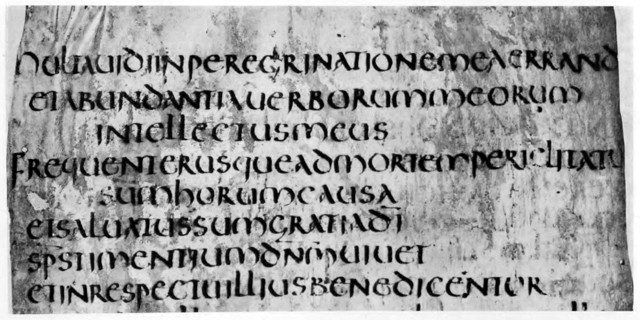 multauidiinperegrinationemeaerrand
etabundantiauerborummeorum
intellectusmeus
frequenterusqueadmortempericlitatu
sumhorumcausa
etsaluatussumgratiad̅i̅
sp̅s̅timentiumdn̅m̅uiuet
etinrespectuilliusbenedicentur